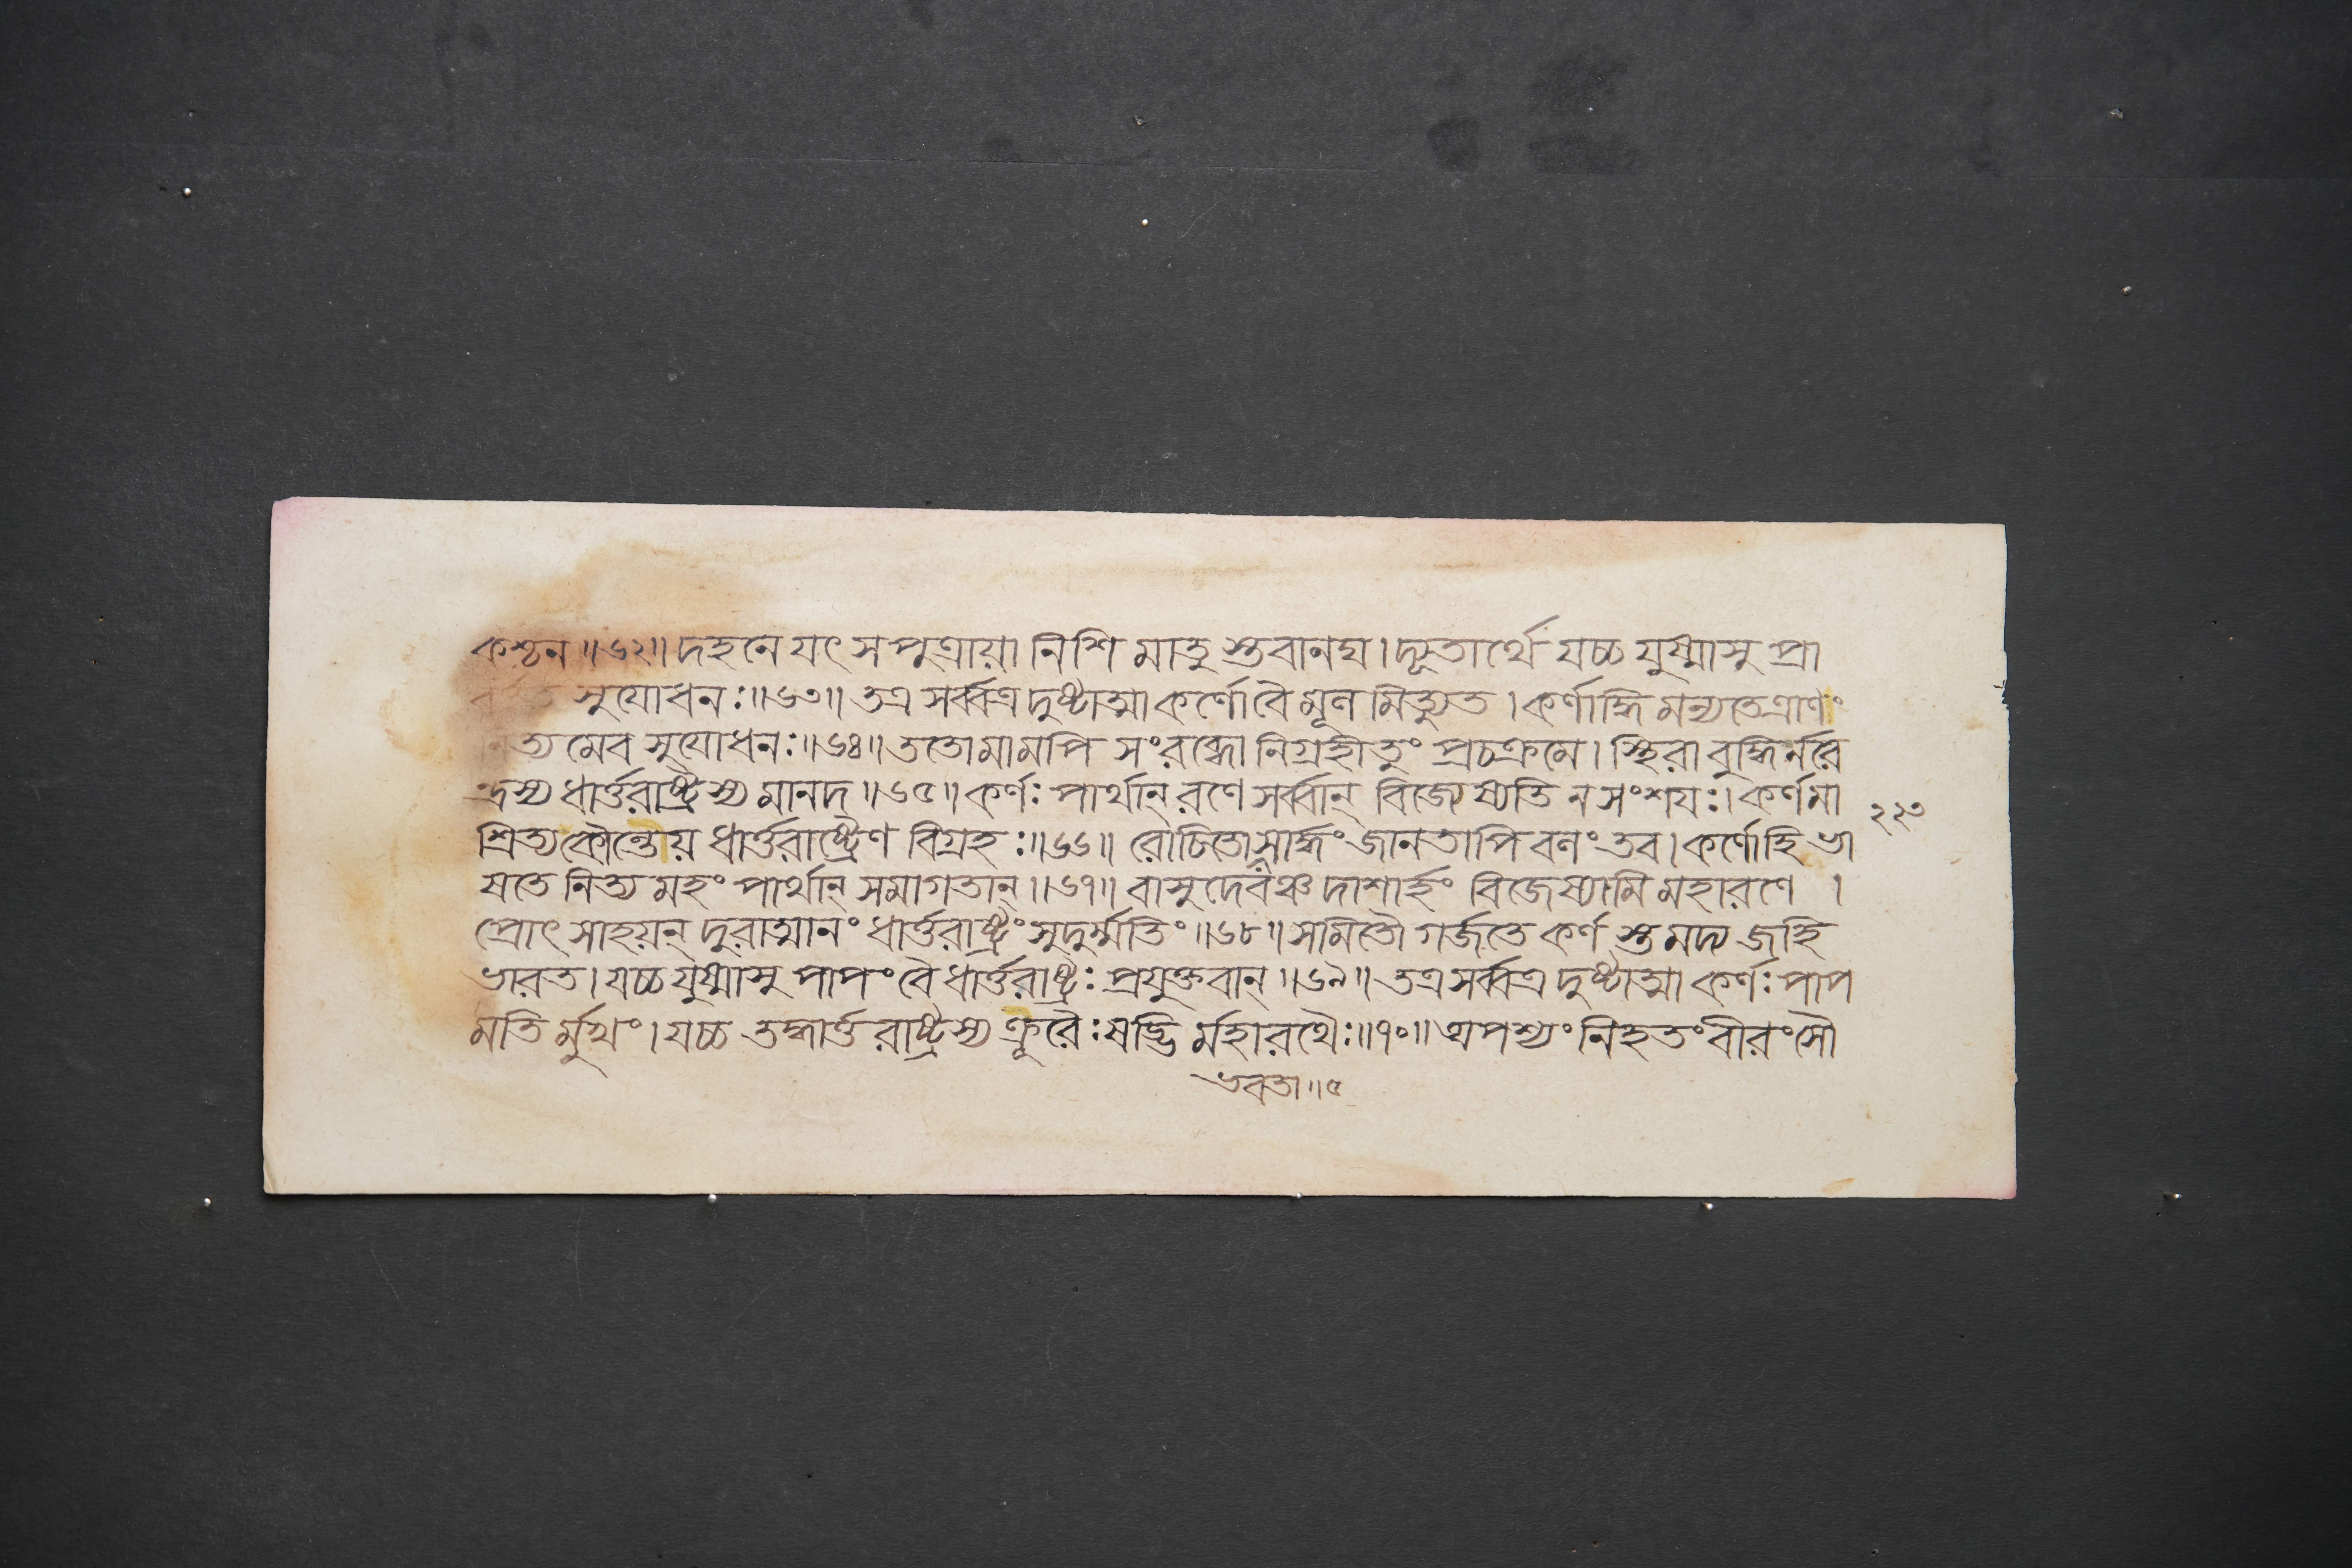 কশ্চন ॥৬২॥ দহনে যৎ সপুত্রায়া নিশি মাতু স্তবানঘ। দ্যূতার্থে যচ্চ যুষ্মাসু প্রা
সুযোধন:॥৬৩॥ তত্র সর্ব্বত্র দুষ্টাত্মা কর্ণো বৈ মূল মিত্যুত । কর্ণাদ্ধি মন্যতে ত্রাণং
নিত্য মেব সুযোধন:॥৬৪॥ ততো মামপি সংরব্ধো নিগ্রহীতুং প্রচক্রমে। স্থিরা বুদ্ধির্নরে
ন্দ্রস্য ধার্ত্তরাষ্ট্রস্য মানদ॥৬৫॥ কর্ণ: পার্থান্ রণে সর্ব্বান্ বিজেষ্যতি ন সংশয:। কর্ণমা
২২৩
শ্রিত্য কৌন্তেয় ধার্ত্তরাষ্ট্রেণ বিগ্রহ:॥৬৬॥ রোচিতো সার্দ্ধং জানতাপি বলং তব। কর্ণো হি ভা
ষতে নিত্য মহং পার্থান্ সমাগতান্॥৬৭॥ বাসুদেবঞ্চ দাশার্হং বিজেষ্যামি মহারণে ।
প্রোৎ সাহয়ন্ দুরাত্মানং ধার্ত্তরাষ্ট্রং সুদুর্ম্মতিং॥৬৮॥ সমিতৌ গর্জতে কর্ণ স্তমদ্য জহি
ভারত। যচ্চ যুষ্মাসু পাপং বৈ ধার্ত্তরাষ্ট্র: প্রযুক্তবান্॥৬৯॥ তত্র সর্ব্বত্র দুষ্টাত্মা কর্ণ: পাপ
মতি র্মুখং। যচ্চ তদ্ধার্ত্ত রাষ্ট্রস্য ক্রূরৈ: ষড্ভি র্মহারথৈ:॥৭০॥ অপশ্যং নিহতং বীরং সৌ
ভবতা॥৫